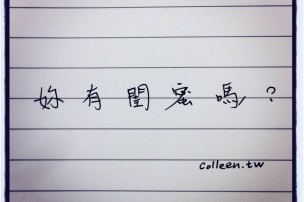 妳有閨蜜嗎？
colleen.tw